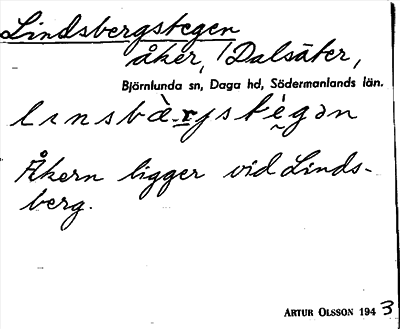 Lindsbergstegen
åker, Dalsäter,
Björnlunda sn, Daga hd, Södermanlands län.
lınsbà-rjstègən
Åkern ligger vid Linds-
berg.
ARTUR OLSSON 1943